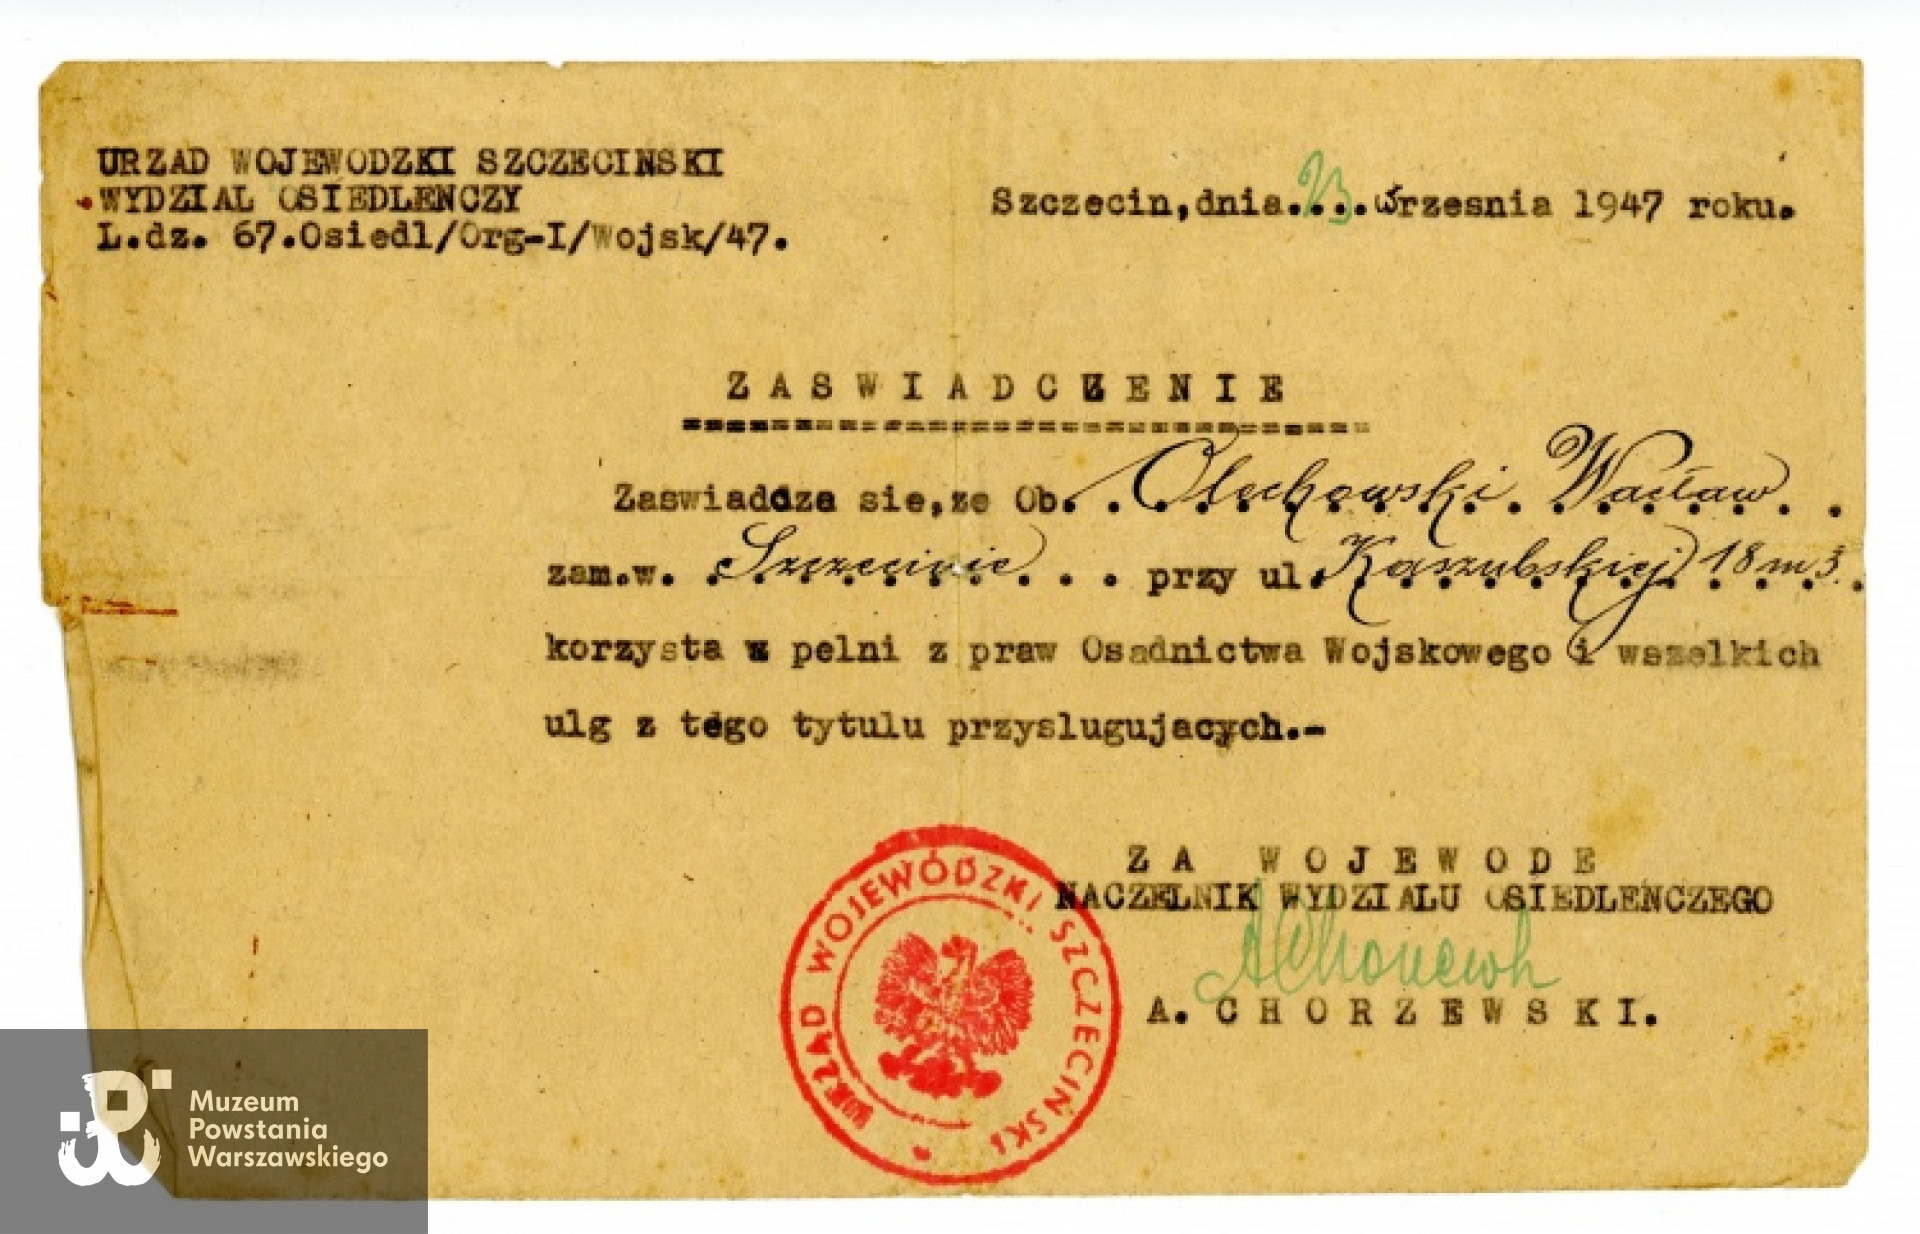 URZAD WOJEWODZKI SZCZECINSKI
WYDZIAL OSIEDLENCZY
L.dz. 67.Osiedl/Org-I/Wojsk/47.
Szczecin,dnia.23..Wrzesnia 1947 roku.
ZASWIADCZENIE
Zaswiadcza sie,ze Ob. Olechowski Wacław
zam.w. Szczecinie przy ul. Kaszubskiej 18 m 3.
korzysta w pelni z praw Osadnictwa Wojskowego i wszelkich
ulg z tego tytulu przyslugujacych.-
ZA WOJEWODE
NACZELNIK WYDZIALU OSIEDLENCZEGO
A. CHORZEWSKI.
URZĄD WOJEWÓDZKI SZCZECIŃSKI
Muzeum
Powstania
Warszawskiego